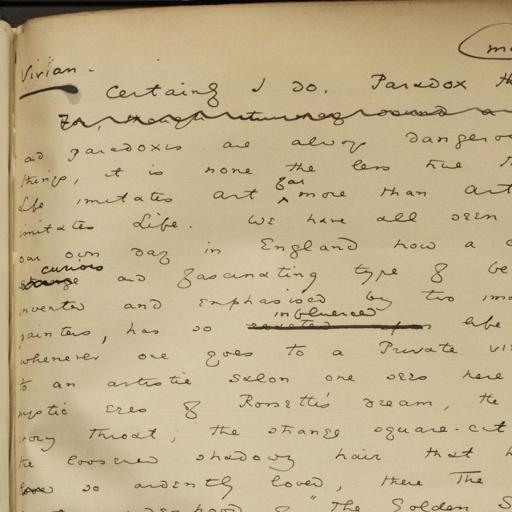 Vivian.
Certainly I do. Paradox th
ad paradoxes are always dangero
things, it is none the less true
Life imitates art far more than art
imitates Life. We have all seen
our own day in England how a c
curious and fascinating type of be
invented and emphasised by two ima
painters, has so influenced life
whenever one goes to a Private vi
to an artistic salon one sees here
mystic eyes of Rossetti's dream, the
ivory throat, the strange square-cut
the loosened shadowy hair that h
so ardently loved, there the
of "The Golden S